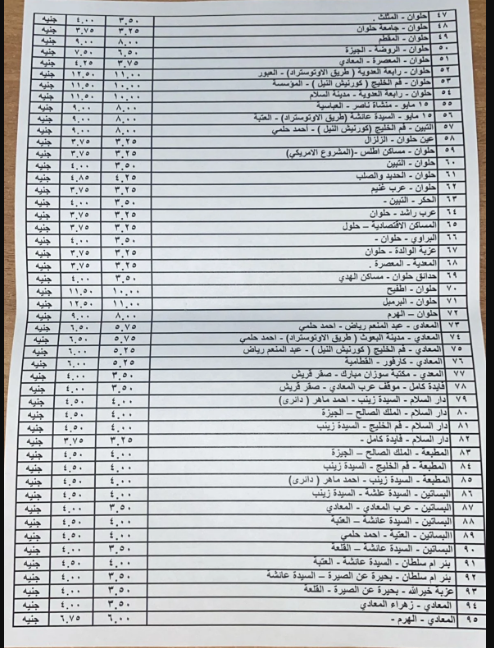 ٤٧ حلوان - المثلث . ٣.٥٠ ٤.٠٠ جنيه
٤٨ حلوان - جامعة حلوان ٣.٢٥ ٣.٧٥ جنيه
٤٩ حلوان - المقطم ٨.٠٠ ٩.٠٠ جنيه
٥٠ حلوان - الروضة - الجيزة ٦.٥٠ ٧.٥٠ جنيه
٥١ حلوان - المعصرة - المعادي ٣.٧٥ ٤.٢٥ جنيه
٥٢ حلوان - رابعة العدوية ( طريق الاوتوستراد) - العبور ١١.٠٠ ١٢.٥٠ جنيه
٥٣ حلوان - فم الخليج ( كورنيش النيل ) - المؤسسة ١٠.٠٠ ١١.٥٠ جنيه
٥٤ حلوان - رابعة العدوية - مدينة السلام ١٠.٠٠ ١١.٥٠ جنيه
٥٥ ١٥ مايو - منشاة ناصر - العباسية ٨.٠٠ ٩.٠٠ جنيه
٥٦ ١٥ مايو - السيدة عائشة (طريق الاوتوستراد) - العتبة ٨.٠٠ ٩.٠٠ جنيه
٥٧ التبين - فم الخليج (كورنيش النيل ) - احمد حلمي ٨.٠٠ ٩.٠٠ جنيه
٥٨ عين حلوان - الزلزال ٣.٢٥ ٣.٧٥ جنيه
٥٩ حلوان - مساكن اطلس -(المشروع الامريكي) ٣.٢٥ ٣.٧٥ جنيه
٦٠ حلوان - التبين ٣.٥٠ ٤.٠٠ جنيه
٦١ حلوان - الحديد والصلب ٤.٢٥ ٤.٨٥ جنيه
٦٢ حلوان - عرب غنيم ٣.٢٥ ٣.٧٥ جنيه
٦٣ الحكر - التبين - ٣.٥٠ ٤.٠٠ جنيه
٦٤ عرب راشد - حلوان ٣.٢٥ ٣.٧٥ جنيه
٦٥ المساكن الاقتصادية – حلول ٣.٢٥ ٣.٧٥ جنيه
٦٦ البراوي - حلوان - ٣.٥٠ ٤.٠٠ جنيه
٦٧ عزبة الوالدة - حلوان ٣.٢٥ ٣.٧٥ جنيه
٦٨ المعدية - المعصرة . ٣.٢٥ ٣.٧٥ جنيه
٦٩ حدائق حلوان - مساكن الهدي ٣.٥٠ ٤.٠٠ جنيه
٧٠ حلوان - اطفيح ١٠.٠٠ ١١.٥٠ جنيه
٧١ حلوان - البرمبل ١١.٠٠ ١٢.٥٠ جنيه
٧٢ حلوان – الهرم ٨.٠٠ ٩.٠٠ جنيه
٧٣ المعادي - عبد المنعم رياض - احمد حلمي ٥.٧٥ ٦.٥٠ جنيه
٧٤ المعادي - مدينة البعوث ( طريق الاوتوستراد) - احمد حلمي ٥.٧٥ ٦.٥٠ جنيه
٧٥ المعادي - فم الخليج ( كورنيش النيل ) - عبد المنعم رياض ٥.٢٥ ٦.٠٠ جنيه
٧٦ المعادي - كارفور - القطامية ٥.٢٥ ٦.٠٠ جنيه
٧٧ المعدي - مكتبة سوزان مبارك - صقر قريش ٣.٥٠ ٤.٠٠ جنيه
٧٨ فايدة كامل - موقف عرب المعادي - صقر قريش ٣.٥٠ ٤.٠٠ جنيه
٧٩ دار السلام - السيدة زينب - احمد ماهر ( دائرى) ٤.٠٠ ٤.٥٠ جنيه
٨٠ دار السلام - الملك الصالح – الجيزة ٤.٠٠ ٤.٥٠ جنيه
٨١ دار السلام - فم الخليج - السيدة زينب ٤.٠٠ ٤.٥٠ جنيه
٨٢ دار السلام - فايدة كامل - ٣.٢٥ ٣.٧٥ جنيه
٨٣ المطبعة - الملك الصالح – الجيزة ٤.٠٠ ٤.٥٠ جنيه
٨٤ المطبعة - فم الخليج - السيدة زينب ٤.٠٠ ٤.٥٠ جنيه
٨٥ المطبعة - السيدة زينب - احمد ماهر ( دائرى) ٤.٠٠ ٤.٥٠ جنيه
٨٦ البساتين - السيدة عئشة - السيدة زينب ٤.٠٠ ٤.٥٠ جنيه
٨٧ البساتين - عرب المعادي - المعادي ٣.٥٠ ٤.٠٠ جنيه
٨٨ البساتين - السيدة عائشة – العتبة ٤.٠٠ ٤.٥٠ جنيه
٨٩ البساتين - العتبة - احمد حلمي ٤.٠٠ ٤.٥٠ جنيه
٩٠ البساتين - السيدة عائشة – القلعة ٣.٥٠ ٤.٠٠ جنيه
٩١ بئر ام سلطان - السيدة عائشة - العتبة ٤.٠٠ ٤.٥٠ جنيه
٩٢ بئر ام سلطان - بحيرة عن الصيرة – السيدة عائشة ٣.٥٠ ٤.٠٠ جنيه
٩٣ عزبة خيرالله - بحيرة عن الصيرة - القلعة ٣.٥٠ ٤.٠٠ جنيه
٩٤ المعادي - زهراء المعادي ٣.٥٠ ٤.٠٠ جنيه
٩٥ المعادي - الهرم - ٦.٠٠ ٦.٧٥ جنيه